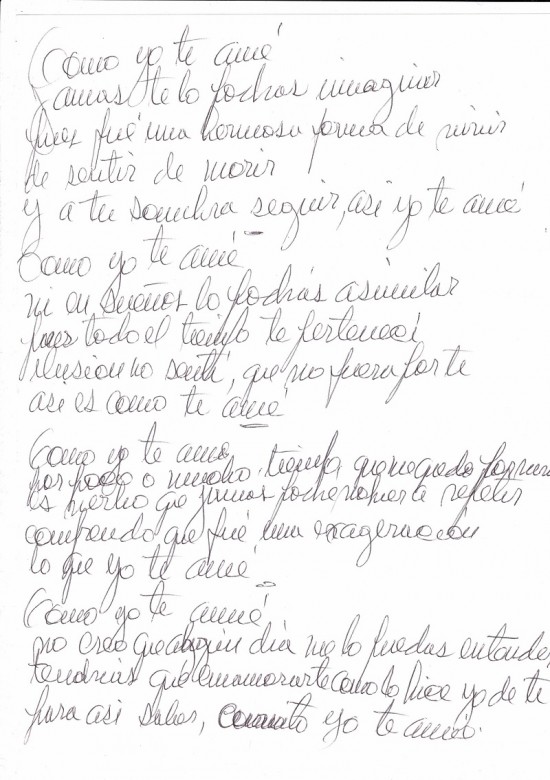 Como yo te amé
Jamas te lo podras imaginar
pues fué una hermosa forma de vivir
de sentir de morir
y a tu sombra seguir, asi yo te amé
Como yo te amé
ni en sueños lo podrás asimilar
pues todo el tiempo te perteneci
ilusion no senti, que no fuera por ti
asi es como te amé
Como yo te amé
por poco o mucho tiempo que me quede por
es cierto que jamas podre volverte repetir
comprendo que fué una exageracion
lo que yo te amé
Como yo te amé
no creo que algun dia me lo puedas entender
tendrias que enamorarte como lo hice yo de ti
para asi saber, cuanto yo te amé.